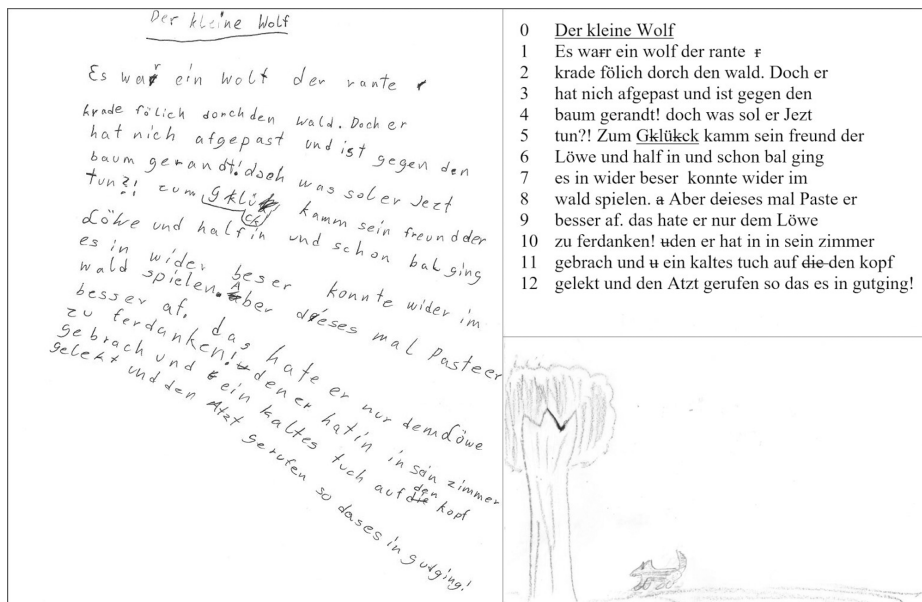 Der kleine Wolf
Es war ein wolf der rante r
krade fölich dorch den wald. Doch er
hat nich afgepast und ist gegen den
baum gerandt! doch was sol er Jezt
tun?! Zum Gklück kamm sein freund der
Löwe und half in und schon bal ging
es in wider beser konnte wider im
wald spielen. Aber dieses mal Paste er
besser af. das hate er nur dem Löwe
zu ferdanken! den er hat in in sein zimmer
gebrach und ein kaltes tuch auf die den kopf
gelekt und den Atzt gerufen so das es in gutging!
0 Der kleine Wolf
1 Es warr ein wolf der rante r
2 krade fölich dorch den wald. Doch er
3 hat nich afgepast und ist gegen den
4 baum gerandt! doch was sol er Jezt
5 tun?! Zum Gklükck kamm sein freund der
6 Löwe und half in und schon bal ging
7 es in wider beser konnte wider im
8 wald spielen. a Aber deieses mal Paste er
9 besser af. das hate er nur dem Löwe
10 zu ferdanken! uden er hat in in sein zimmer
11 gebrach und u ein kaltes tuch auf die den kopf
12 gelekt und den Atzt gerufen so das es in gutging!